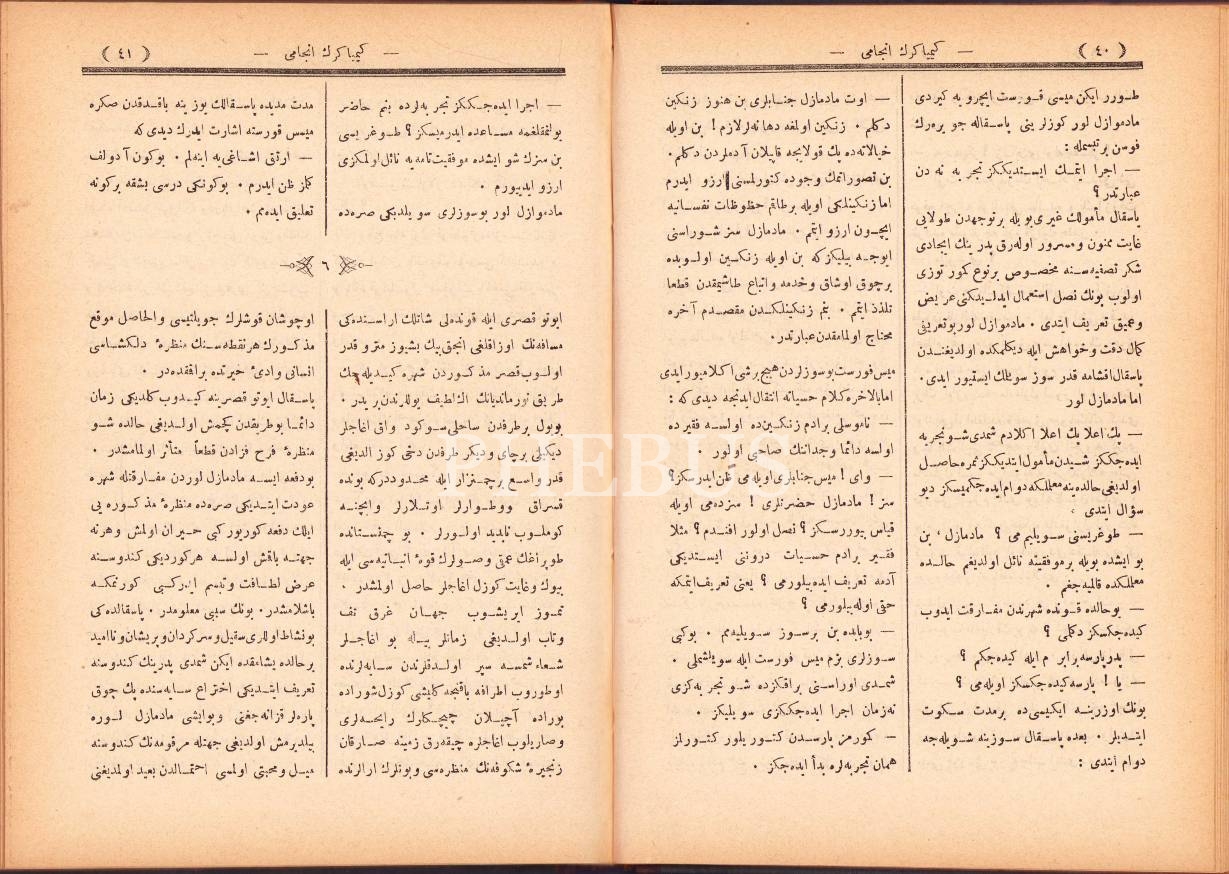 ﴿ ٤٠ ﴾
— كيمياكرك انجامی —
طورر ايكن ميسی فورست ايچرو يه كيردی
مادموازل لور كوزلرينی پاسقاله جويره‌رك
فوسن بر تبسمله :
— اجرا ايتمك ايستديككز تجربه نه دن
عبارتدر ؟
پاسقال مأمولك غيری بويله بر توجهدن طولايی
غايت ممنون و مسرور اوله‌رق پدرينك ايجادی
شكر تصفيه سنه مخصوص بر نوع كمور توزی
اولوب بونك نصل استعمال ايدلديكنی عريض
وعميق تعريف ايتدی . مادموازل لور بو تعريفی
كمال دقت وخواهش ايله ديكلمكده اولديغندن
پاسقال اقشامه قدر سوز سويلمك ايستيور ايدی .
اما مادمازل لور
— پك اعلا پك اعلا اكلادم شمدی شو تجربه
ايده‌جككز شيدن مأمول ايتديككز ثمره حاصل
اولديغی حالده ينه معلملكده دوام ايده‌جكميسكز ديو
سؤال ايتدی .
— طوغريسنی سويليم می ؟ مادمازل ، بن
بو ايشده بويله بر موفقيته نائل اولديغم حالده
معلملكده قالميه‌جغم .
— بو حالده قونده شهرندن مفارقت ايدوب
كيده‌جكسكز دكلمی ؟
— پدر پارسه برابرم ايله كيده‌جكم ؟
— يا ! پارسه كيده‌جكسكز اويله‌می ؟
بونك اوزرينه ايكيسی ده بر مدت سكوت
ايتديلر . بعده پاسقال سوزينه شويله‌جه
دوام ايتدی :
— اوت مادمازل جنابلری بن هنوز زنكين
دكلم . زنكين اولمغه دها نه لر لازم ! بن اويله
خيالاته‌ده پك قولايجه قاپيلان آدملردن دكلم .
بن تصوراتمك وجوده كتورلمسنی آرزو ايدرم
اما زنكينلكی اويله بر طاقم حظوظات نفسانيه
ايچون ارزو ايتمم . مادمازل سز شوراسنی
ايوجه بيليكز كه بن اويله زنكين اولوبده
برچوق اوشاق وخدمه واتباع طاشيمقدن قطعا
تلذذ ايتمم . بنم زنكينلكدن مقصدم آخره
محتاج اولمامقدن عبارتدر .
ميس فورست بو سوزلردن هيچ بر شی اكلاميور ايدی
اما بالاخره كلام حسياته انتقال ايدنجه ديدی كه :
— ناموسلی بر ادم زنكين‌ده اولسه فقيرده
اولسه دائما وجدانك صاحبی اولور .
— وای ! ميس جنابلری اويله‌می ظن ايدرسكز ؟
سز ! مادمازل حضرتلری ! سزده‌می اويله
قياس بيوررسكز ؟ نصل اولور افندم ؟ مثلا
فقير بر ادم حسيات درونی ايستديكی
آدمه تعريف ايده بيلورمی ؟ يعنی تعريف ايتمكه
حقی اوله‌بيلورمی ؟
— بو بابده بن بر سوز سويليه‌مم . بو كبی
سوزلری بزم ميس فورست ايله سويلشملی .
شمدی اوراسنی براقكزده شو تجربه‌كزی
نه زمان اجرا ايده‌جككزی سويليكز .
— كومرمز پارسدن كتوريلور كتورلمز
همان تجربه‌لره بدأ ايده‌جكز .
﴿ ٤١ ﴾
— كيمياكرك انجامی —
— اجرا ايده‌جككز تجربه‌لرده بنم حاضر
بولنمقلغمه مساعده ايدرميسكز ؟ طوغريسی
بن سزك شو ايشده موفقيت تامه‌يه نائل اولمكزی
ارزو ايدييورم .
مادموازل لور بو سوزلری سويلديكی صره‌ده
مدت مديده پاسقالك يوزينه باقدقدن صكره
ميس فورسته اشارت ايدرك ديدی كه
— ارتق اشاغی‌يه اينه‌لم . بو كون آدولف
كلمز ظن ايدرم . بو كونكی درسی بشقه بر كونه
تعليق ايده‌لم .
٦
ابوتو قصری ايله قونده‌لی شاتلك اراسنده‌كی
مسافه‌نك اوزاقلغی انجق بيك بشيوز مترو قدر
اولوب قصر مذكوردن شهره كيديله‌جك
طريق نورمانديانك اك لطيف يوللرندن بريدر .
بو يول بر طرفدن ساحلی سوكود واق اغاجلر
ديكيلی بر چای وديكر طرفدن دخی كوز الديغی
قدر واسع بر چمنزار ايله محدوددر كه بونده
قسراق ووطوارلر اوتلارلر وايچنه
كوملوب ناپديد اولورلر . بو چمنستانده
طوپراغك عمقی وصولرك قوۀ انباتيه‌سی ايله
بيوك وغايت كوزل اغاجلر حاصل اولمشدر .
تموز ايريشوب جهان غرق تف
وتاب اولديغی زمانلر بيله بو اغاجلر
شعاع شمسه سپر اولدقلرندن سايه‌لرنده
اوطوروب اطرافه باقنجه كمايشی كوزل شوراده
بوراده آچيلان چيچكلرك رايحه‌لری
وصاريلوب اغاجلره چيقه‌رق زمينه صارقان
زنجيره شكوفه‌نك منظره‌سی وبونلرك ارالرنده
اوچوشان قوشلرك جويلتيسی والحاصل موقع
مذكورك هر نقطه‌سنك منظرۀ دلكشامی
انسانی وادئ حيرتده براققده‌در .
پاسقال ابوتو قصرينه كيدوب كلديكی زمان
دائما بو طريقدن كچمش اولديغی حالده شو
منظرۀ فرح فزادن قطعاً متأثر اولمامشدر .
بو دفعه ايسه مادمازل لوردن مفارقتله شهره
عودت ايتديكی صره‌ده منظرۀ مذكوره‌يی
ايلك دفعه كوريور كبی حيران اولمش وهر نه
جهته باقمش اولسه هر كورديكی كندوسنه
عرض لطافت وتبسم ايدر كبی كورنمكه
باشلامشدر . بونك سببی معلومدر . پاسقالده‌كی
بو نشاط اولری سفيل وسركردان وپريشان و نااميد
بر حالده يشامقده ايكن شمدی پدرينك كندوسنه
تعريف ايتديكی اختراع سايه‌سنده پك چوق
پاره‌لر قزانه‌جغنی وبو ايشی مادمازل لوره
بيلديرمش اولديغی جهتله مرقومه‌نك كندوسنه
ميل ومحبتی اولمسی احتمالدن بعيد اولمديغنی
PHEBUS